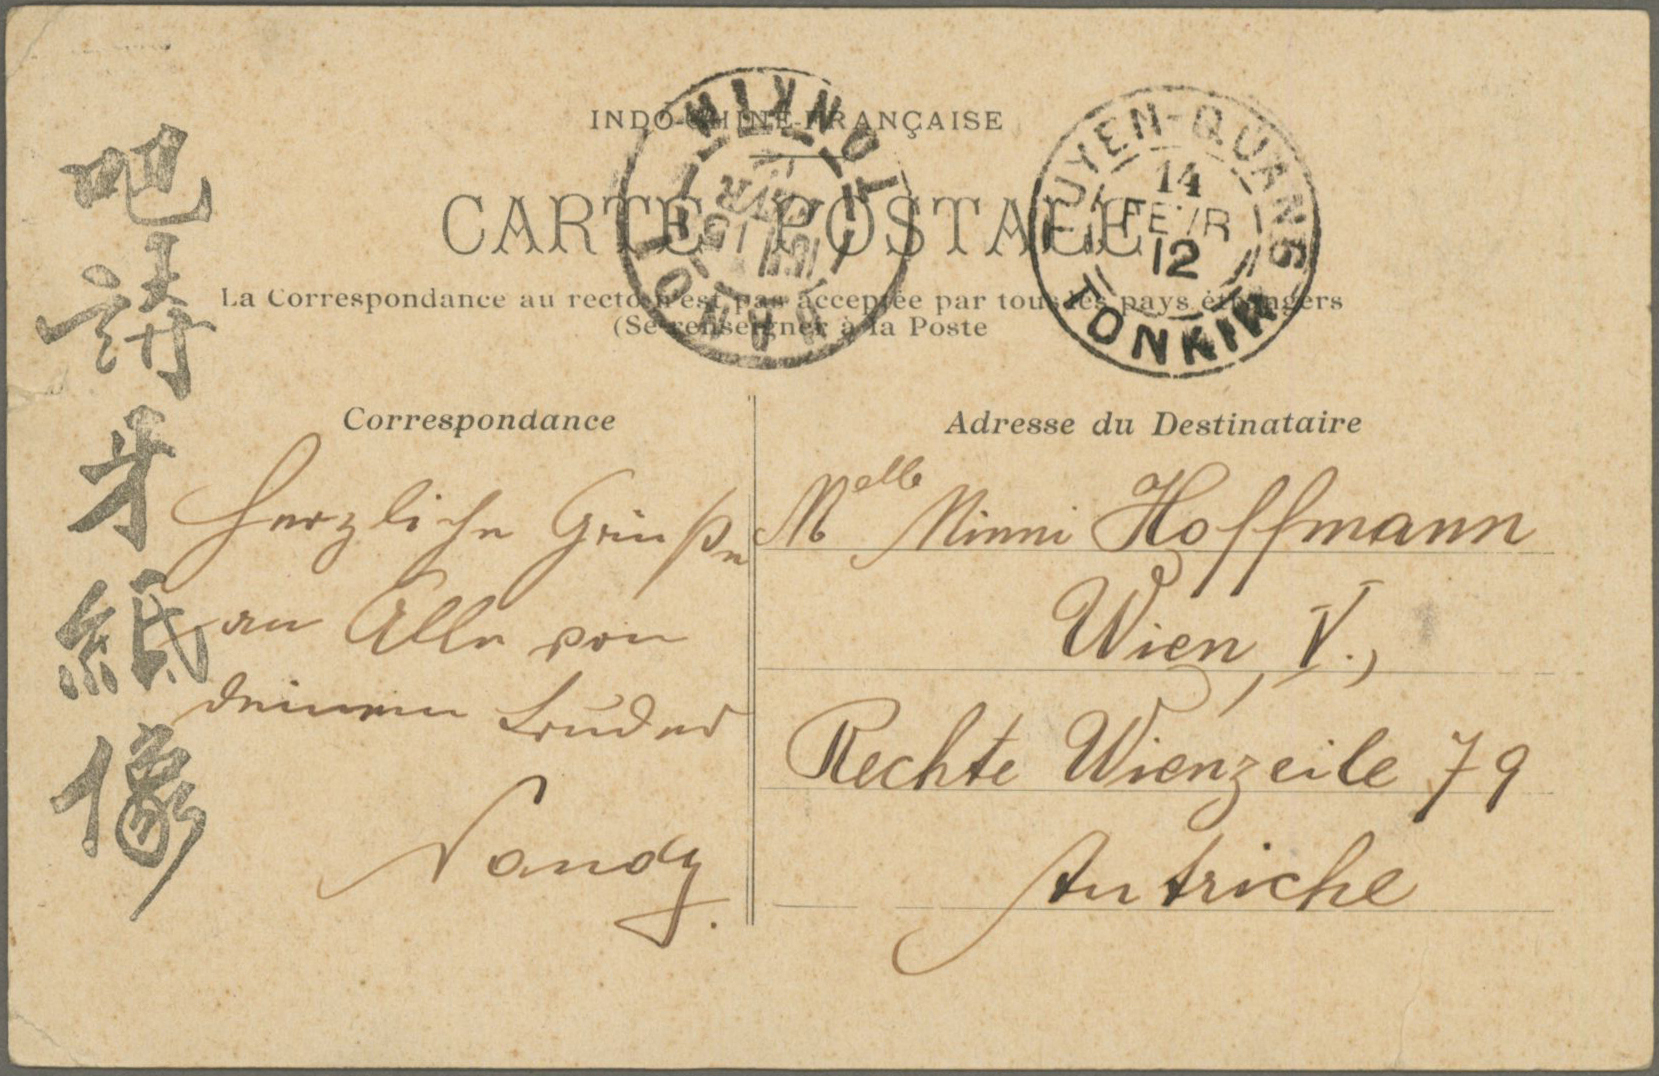 INDO-CHINE-FRANÇAISE
CARTE POSTALE
La Correspondance au recto n'est pas acceptée par tous les pays étrangers
(Se renseigner à la Poste
TUYEN-QUANG
14
FEVR
12
TONKIN
HANOI
TONKIN
吧
詩
牙
紙
像
Correspondance
Herzliche Grüße
an Alle von
deinem Bruder
Nandy.
Adresse du Destinataire
Melle Minni Hoffmann
Wien, V.,
Rechte Wienzeile 79
Autriche